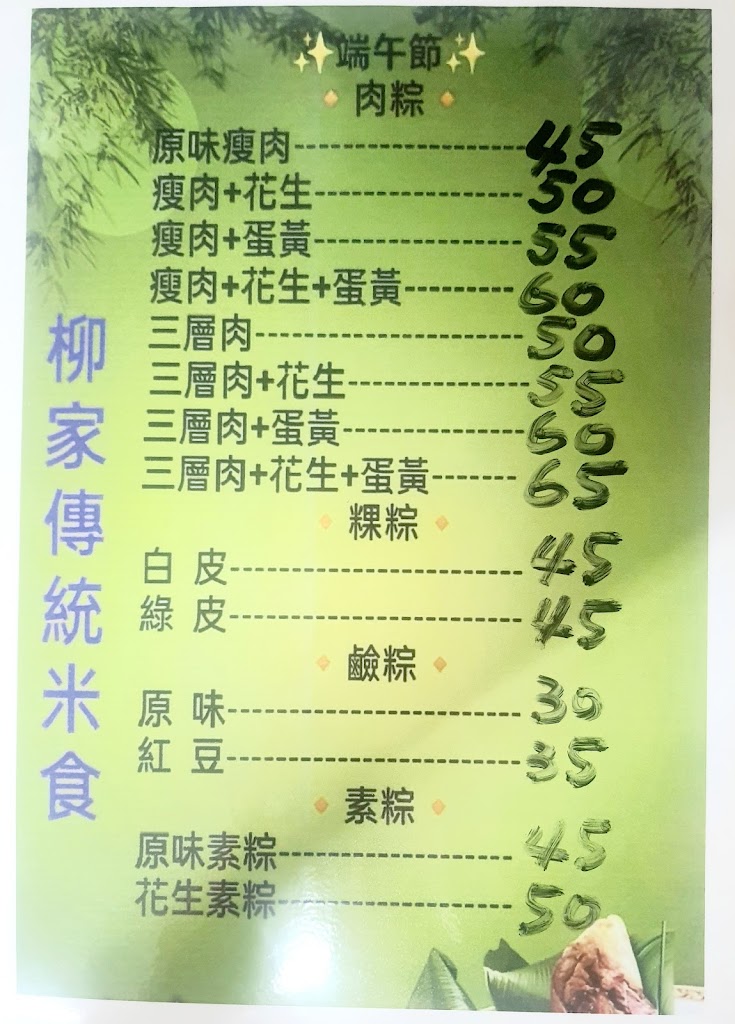 ✨端午節✨
🔸肉粽🔸
原味瘦肉----------------------45
瘦肉+花生--------------------50
瘦肉+蛋黃--------------------55
瘦肉+花生+蛋黃----------60
三層肉--------------------------50
三層肉+花生-----------------55
三層肉+蛋黃-----------------60
三層肉+花生+蛋黃-------65
🔸粿粽🔸
白 皮----------------------------45
綠 皮----------------------------45
🔸鹼粽🔸
原 味----------------------------30
紅 豆----------------------------35
🔸素粽🔸
原味素粽----------------------45
花生素粽----------------------50
柳家傳統米食